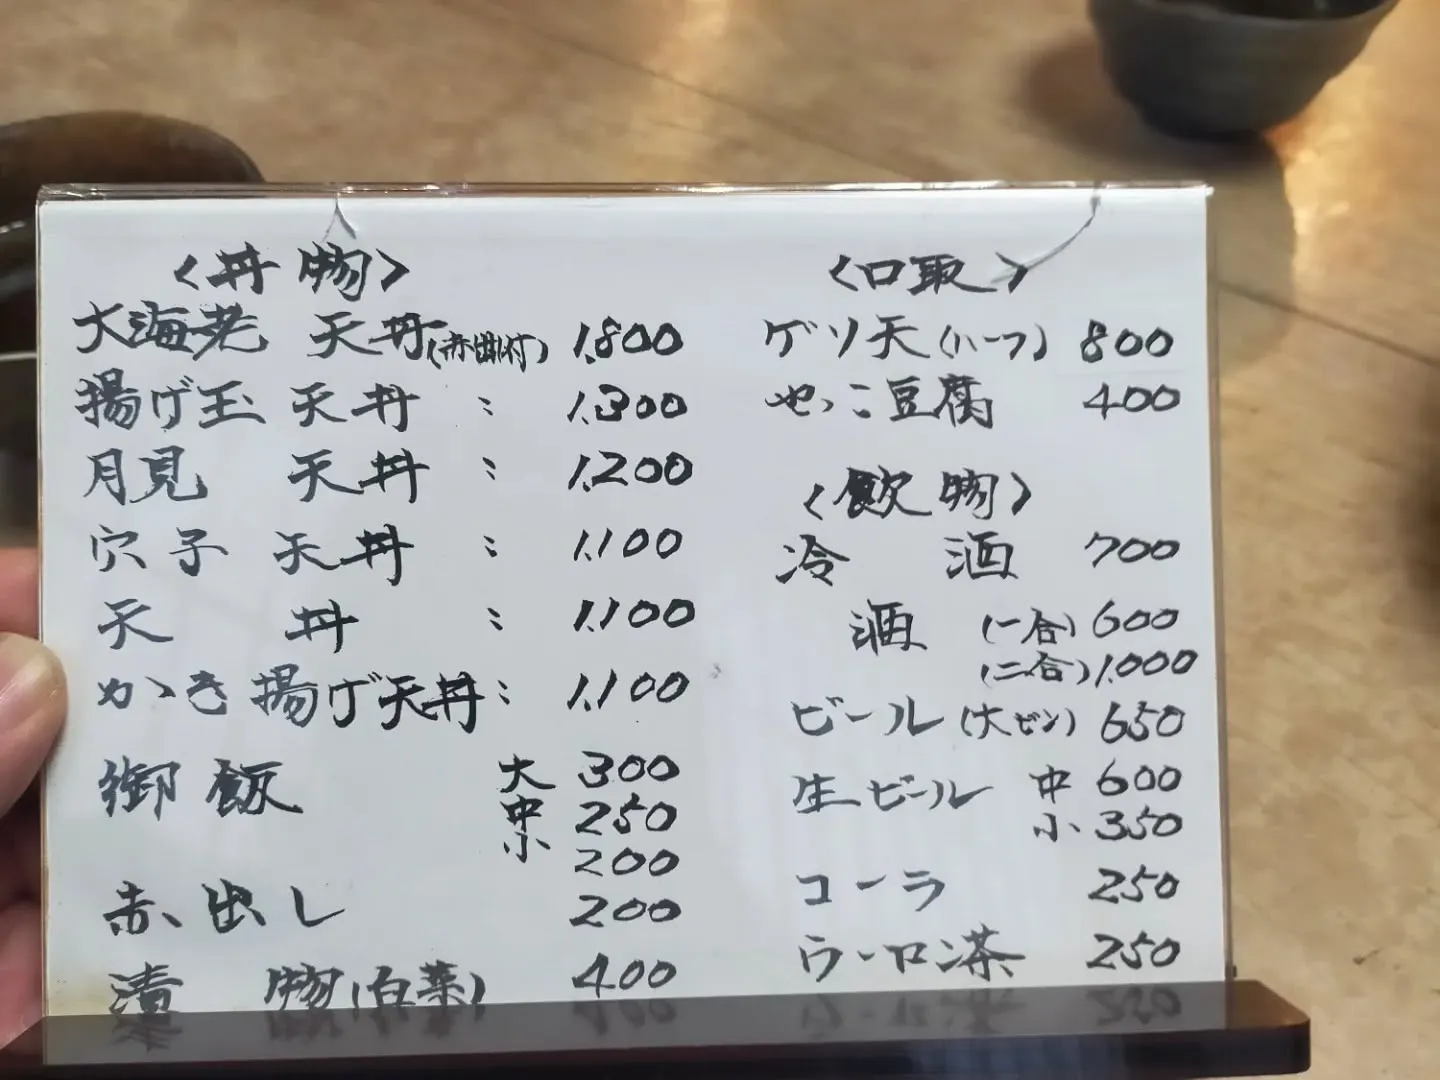 〈丼物〉
大海老 天丼(赤出し付) 1,800
揚げ玉 天丼 〃 1,300
月見 天丼 〃 1,200
穴子 天丼 〃 1,100
天丼 〃 1,100
かき揚げ天丼 〃 1,100
御飯 大 300
中 250
小 200
赤出し 200
漬物(白菜) 400
〈口取〉
ゲソ天(ハーフ) 800
やっこ豆腐 400
〈飲物〉
冷酒 700
酒 (一合) 600
(二合) 1,000
ビール(大ビン) 650
生ビール 中 600
小 350
コーラ 250
ウーロン茶 250